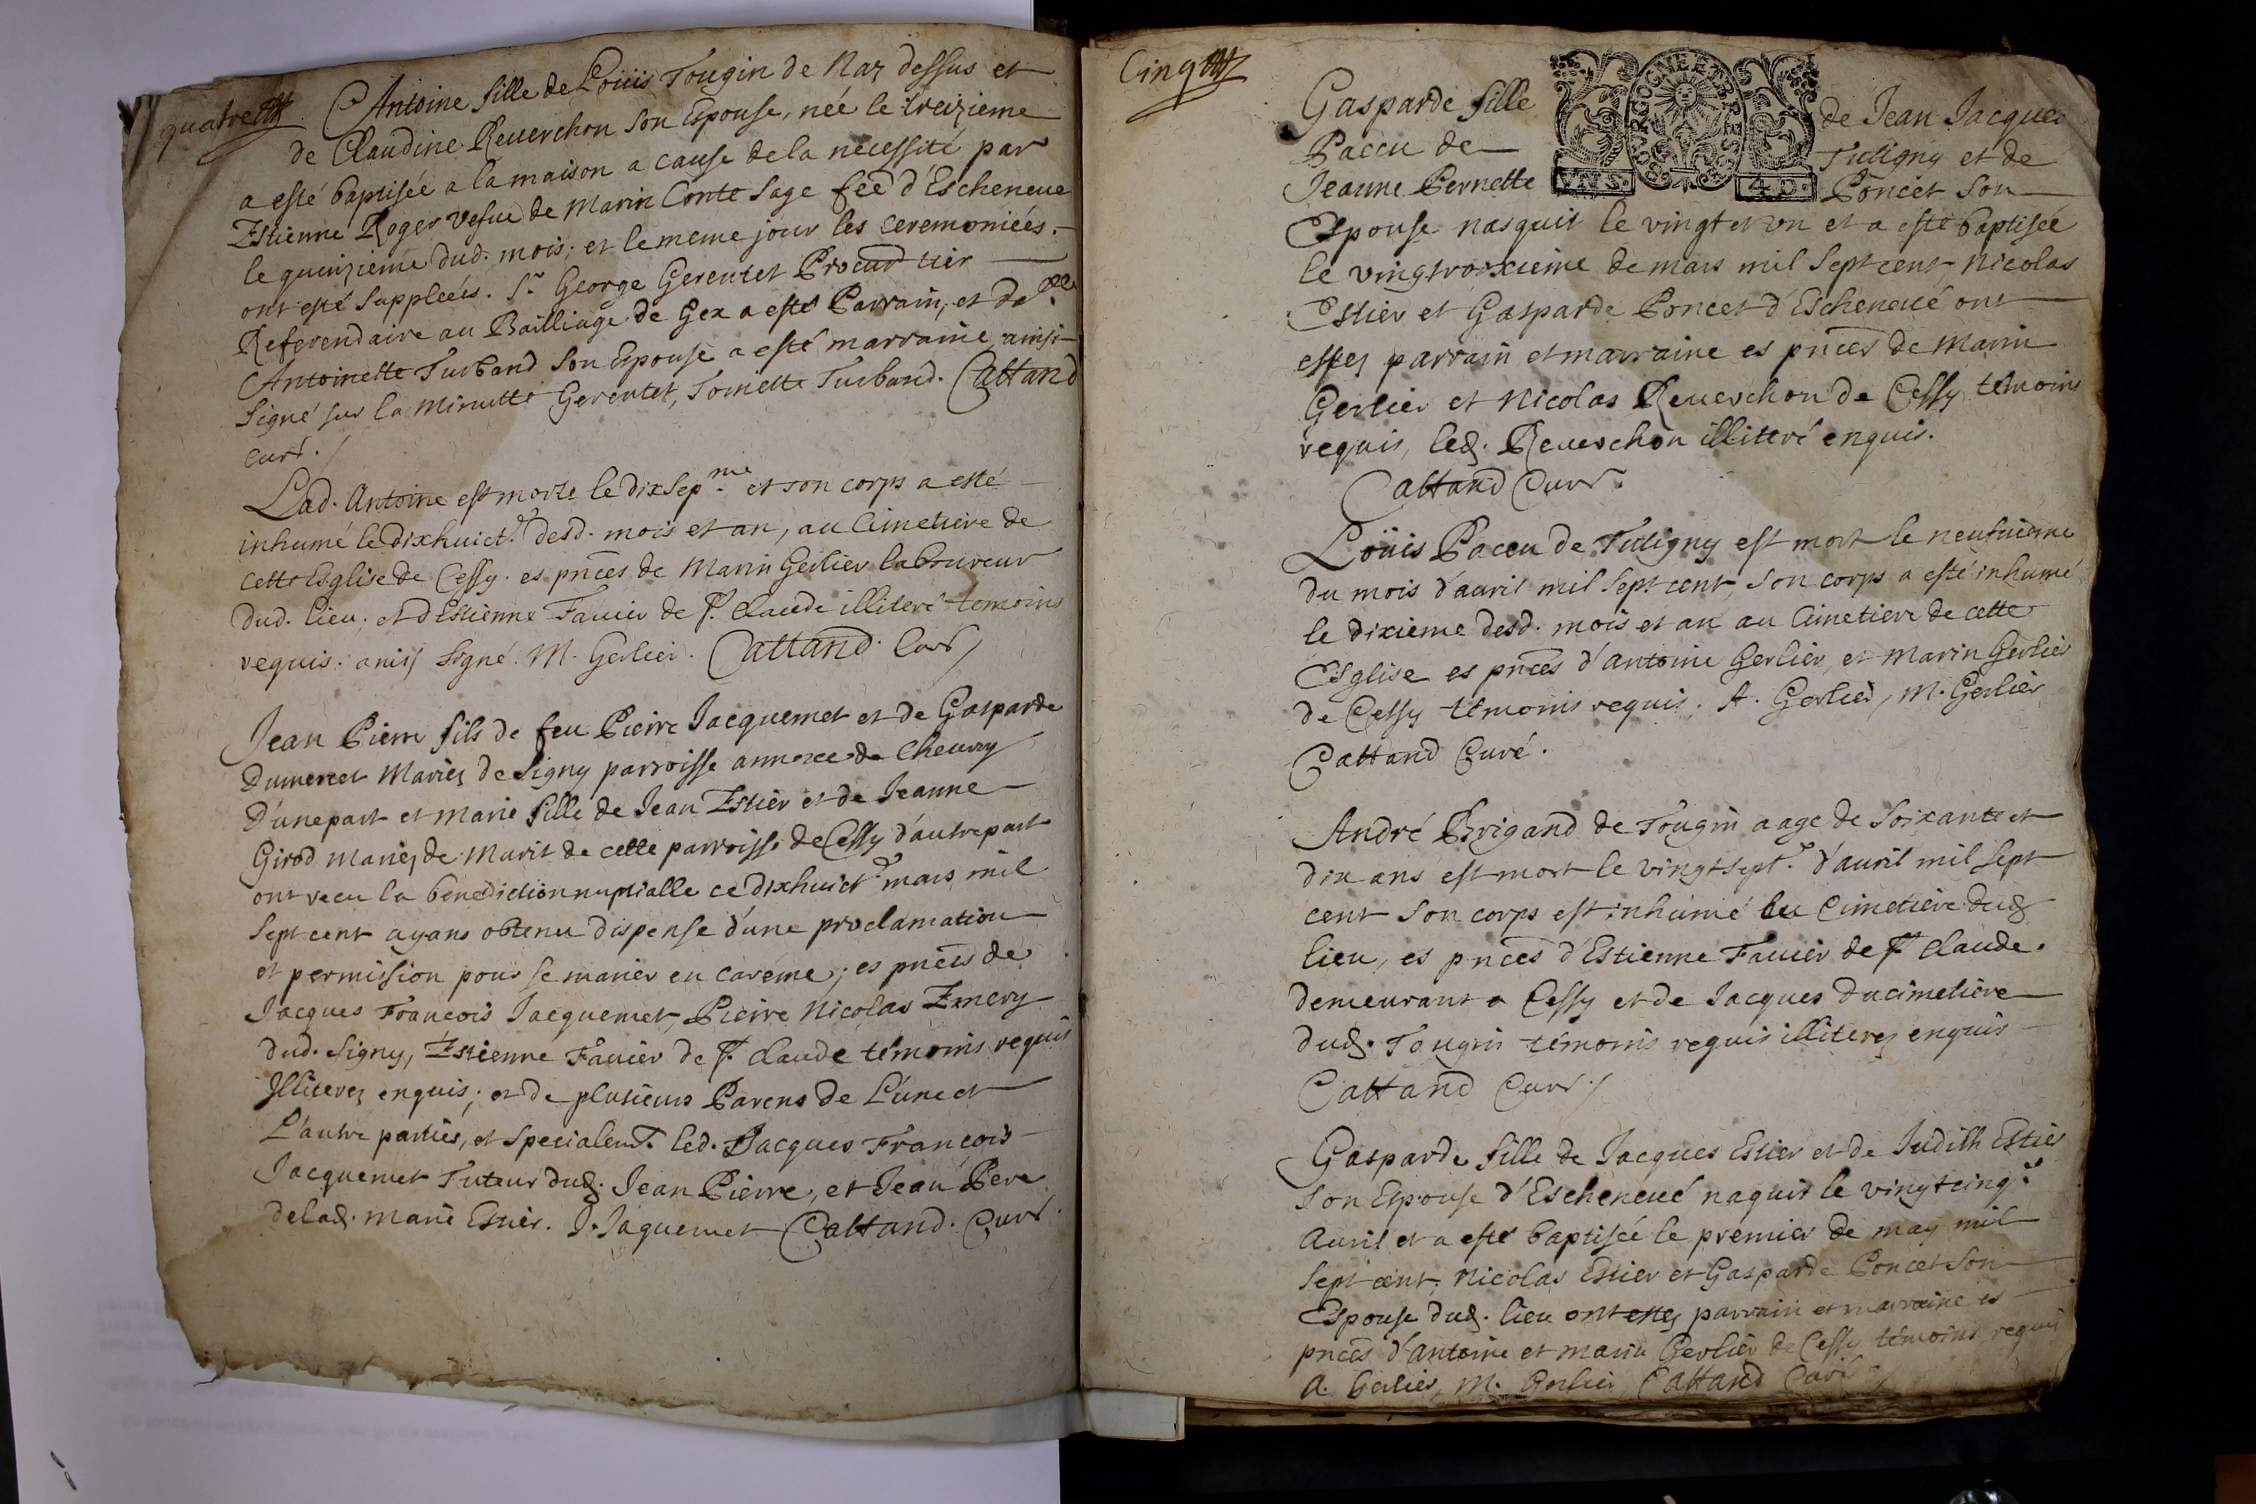 quatre
Antoine fille de Loüis Tougin de Naz dessus et
de Claudine Reuerchon son Espouse, née le treizieme
a esté baptisée a la maison a cause de la necessité par
Estienne Roger vefue de Marin Conte sage feé d'Escheneue
le quinzieme dud. mois, et le meme jour les ceremoniées.
ont esté suppleeés. Sr. George Gerentet Procur tier
Referendaire au Bailliage de Gex a esté Parrain, et delle
Antoinette Turband son Espouse a esté marraine ainsi
signé sur la Minutte Gerentet, Toinette Turband. Cattand
curé.
Lad. Antoine est morte le dix sepme. et son corps a esté
inhumé le dixhuicte. desd. mois et an, au Cimetiere de
cette Esglise de Cessy. es pnces de Marin Gerlier laboureur
dud. lieu. et d'Estienne Fauier de St. Claude illiteré temoins
requis. ainsj signé. M. Gerlier. Cattand. Curé
Jean Pierre fils de feu Pierre Jacquemet et de Gasparde
Dumeret Mariez de Signy parroisse annexe de Cheury
D'une part et Marie fille de Jean Estier et de Jeanne
Girod mariez de Murit de cette parroisse de Cessy d'autre part
ont recu la benediction nuptialle ce dixhuicte. mars mil
sept cent ayans obtenu dispense d'une proclamation
et permission pour se marier en caréme; es pnces de
Jacques François Jacquemet, Pierre Nicolas Emery
dud. Signy, Estienne Fauier de St. Claude témoins requis
Illiterez enquis; et de plusieurs Parens de L'une et
L'autre parties, et specialemt. led. Jacques François
Jacquemet Tuteur dud. Jean Pierre, et Jean Pere
de lad. marie Estier. J. Jaquemet Cattand. Curé.
Cinq
Gasparde fille de Jean Jacques
Paccu de Tutigny et de
Jeanne Pernette Poncet son
BOVRGOGNE ET BRESSE
VN S. 4 D.
Espouse nasquit le vingt et vn et a esté baptisée
le vingtroixieme de mars mil sept cent Nicolas
Estier et Gasparde Poncet d'Escheneué ont
estez parrain et marraine es pnces de Marin
Gerlier et Nicolas Reuerchon de Cessy témoins
requis, led. Reuerchon illiteré enquis.
Cattand Curé.
Loüis Paccu de Tutigny est mort le neufuieme
du mois d'auril mil sept cent, son corps a esté inhumé
le dixieme desd. mois et an au Cimetiere de cette
Esglise es pnces d'antoine Gerlier, et Marin Gerlier
de Cessy témoins requis. A. Gerlier, M. Gerlier
Cattand Curé.
André Brigand de Tougin aage de soixante et
dix ans est mort le vingtsepte. d'auril mil sept
cent son corps est inhumé au Cimetiere dud
lieu, es pnces d'Estienne Fauier de St Claude.
demeurant a Cessy et de Jacques Ducimetiere
dud. Tougin témoins requis illiterez enquis
Cattand Curé.
Gasparde fille de Jacques Estier et de Judith Estier
son Espouse d'Escheneué naquit le vingtcinqe.
Auril et a esté baptisée le premier de may mil
sept cent. Nicolas Estier et Gasparde Poncet son
Espouse dud. lieu ont estez parrain et marraine es
pnces d'antoine et marin Gerlier de Cessy témoins requis
A. Gerlier, M. Gerlier, Cattand Curé